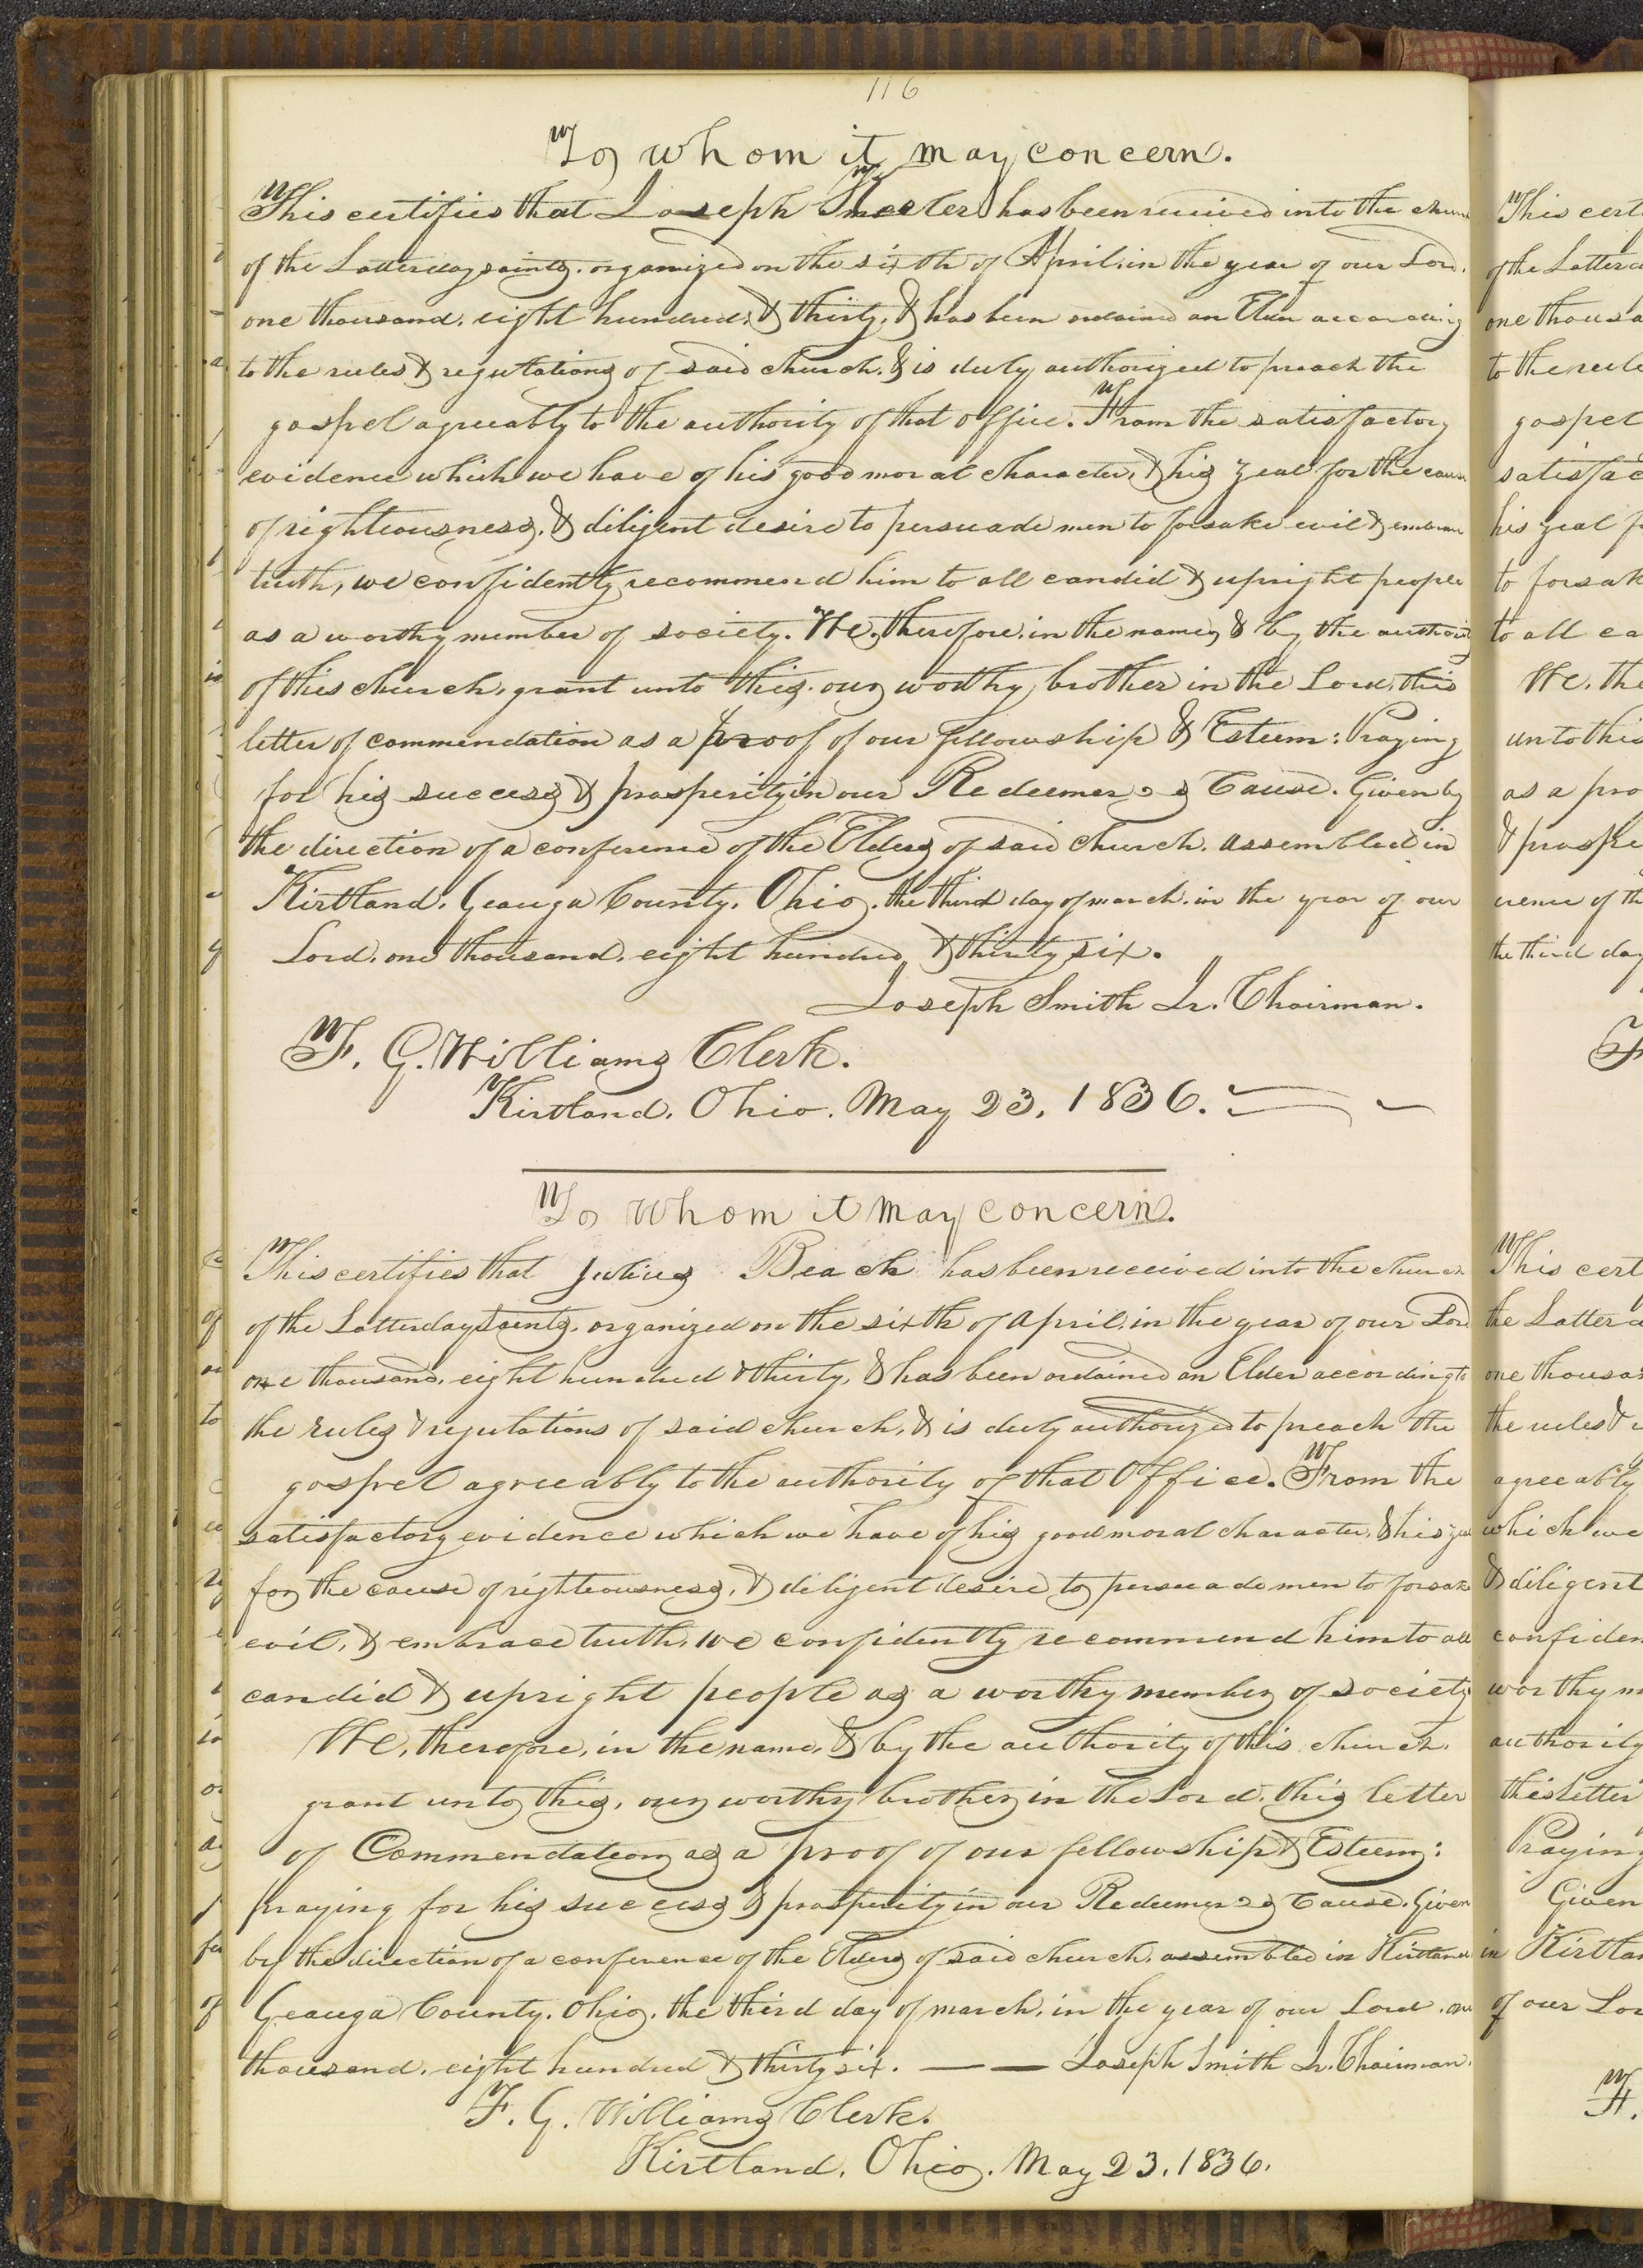 116
To whom it may concern.
This certifies that Joseph has been received into the
of the Latter day saints, organized on the sixth of April, in the year of our Lord,
one thousand, eight hundred, & thirty, & has been ordained an Elder according
to the rules & regulations of said church, & is duly authorized to preach the
gospel agreeably to the authority of that office. From the satisfactory
evidence which we have of his good moral character, & his zeal for the cause
of righteousness, & diligent desire to persuade men to forsake evil & embrace
truth, we confidently recommend him to all candid & upright people
as a worthy member of society. We, therefore, in the name, & by the authority
of this church, grant unto this, our worthy brother in the Lord, this
letter of commendation as a proof of our fellowship & Esteem: Praying
for his success & prosperity in our Redeemer's Cause. Given by
the direction of a conference of the Elders of said church, assembled in
Kirtland, Geauga County, Ohio, the third day of march, in the year of our
Lord, one thousand, eight hundred & thirty six.
Joseph Smith Jr. Chairman.
F. G. Williams Clerk.
Kirtland, Ohio. May 23, 1836.
To whom it may concern.
This certifies that Julius Beach has been received into the church
of the Latter day Saints, organized on the sixth of April, in the year of our Lord
one thousand, eight hundred & thirty, & has been ordained an Elder according to
the rules & regulations of said church, & is duly authorized to preach the
gospel agreeably to the authority of that Office. From the
satisfactory evidence which we have of his good moral character, & his zeal
for the cause of righteousness, & diligent desire to persuade men to forsake
evil, & embrace truth, we confidently recommend him to all
candid & upright people as a worthy member of society
We, therefore, in the name, & by the authority of this church,
grant unto this, our worthy brother in the Lord, this letter
of Commendation as a proof of our fellowship & Esteem:
praying for his success & prosperity in our Redeemer's Cause. Given
by the direction of a conference of the Elders of said church, assembled in Kirtland
Geauga County, Ohio, the third day of march, in the year of our Lord, one
thousand, eight hundred & thirty six. — — Joseph Smith Jr. Chairman.
F. G. Williams Clerk.
Kirtland, Ohio. May 23, 1836.
This cert
of the Latter
one thousa
to the rule
gospel
satisfac
his zeal f
to forsak
to all ca
We, the
unto this
as a pro
& prospe
erence of th
the third day
F
This cert
the Latter
one thousa
the rules &
agreeably
which we
& diligent
confiden
worthy m
authority
this letter
Praying
Given
in Kirtla
of our Lor
F.